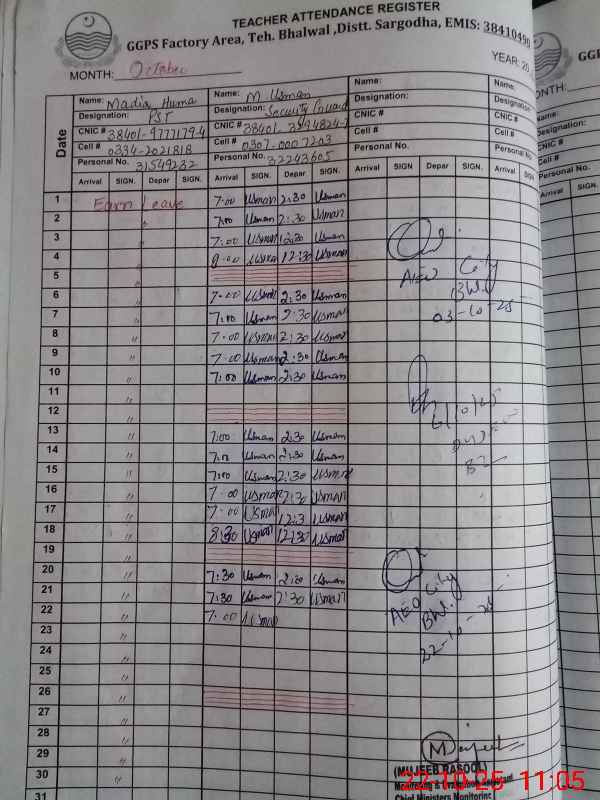 TEACHER ATTENDANCE REGISTER
GGPS Factory Area, Teh. Bhalwal ,Distt. Sargodha, EMIS: 38410490
MONTH: October YEAR: 20
Date
Name: Madia Huma Name: M. Usman Name: Name:
Designation: PST Designation: Security Guard Designation: Designation:
CNIC # 38401-9777179-4 CNIC # 38401 CNIC # CNIC #
Cell # 0334-2021818 Cell # 0307-0007203 Cell # Cell #
Personal No. 31549232 Personal No. 32243605 Personal No. Personal
Arrival SIGN. Depar SIGN. Arrival SIGN. Depar SIGN. Arrival SIGN. Depar SIGN. Arrival
1 Earn Leave 7:00 Usman 2:30 Usman
2 〃 7:00 Usman 2:30 Usman
3 〃 7:00 Usman 12:30 Usman
4 〃 8:00 Usman 12:30 Usman
5 〃
AEO City
BWL
03-10-25
6 〃 7:00 Usman 2:30 Usman
7 〃 7:00 Usman 2:30 Usman
8 〃 7:00 Usman 2:30 Usman
9 〃 7:00 Usman 2:30 Usman
10 〃 7:00 Usman 2:30 Usman
11 〃
12 〃
13 〃 7:00 Usman 2:30 Usman
14 〃 7:00 Usman 2:30 Usman
15 〃 7:00 Usman 2:30 Usman
16 〃 7:00 Usman 2:30 Usman
17 〃 7:00 Usman Usman
18 〃 8:30 Usman 12:30 Usman
19 〃
20 〃 7:30 Usman Usman
21 〃 7:30 Usman 2:30 Usman
22 〃 7:00 Usman
AEO City
BWL
22-10-25
23 〃
24 〃
25 〃
26 〃
27 〃
28 〃
29 〃
30 〃
31
(MUJEEB RASOOL)
Chief Ministers Monitoring
22-10-25 11:05
GGPS
MONTH:
Name:
Designation:
CNIC #
Cell #
Personal No.
Arrival SIGN.